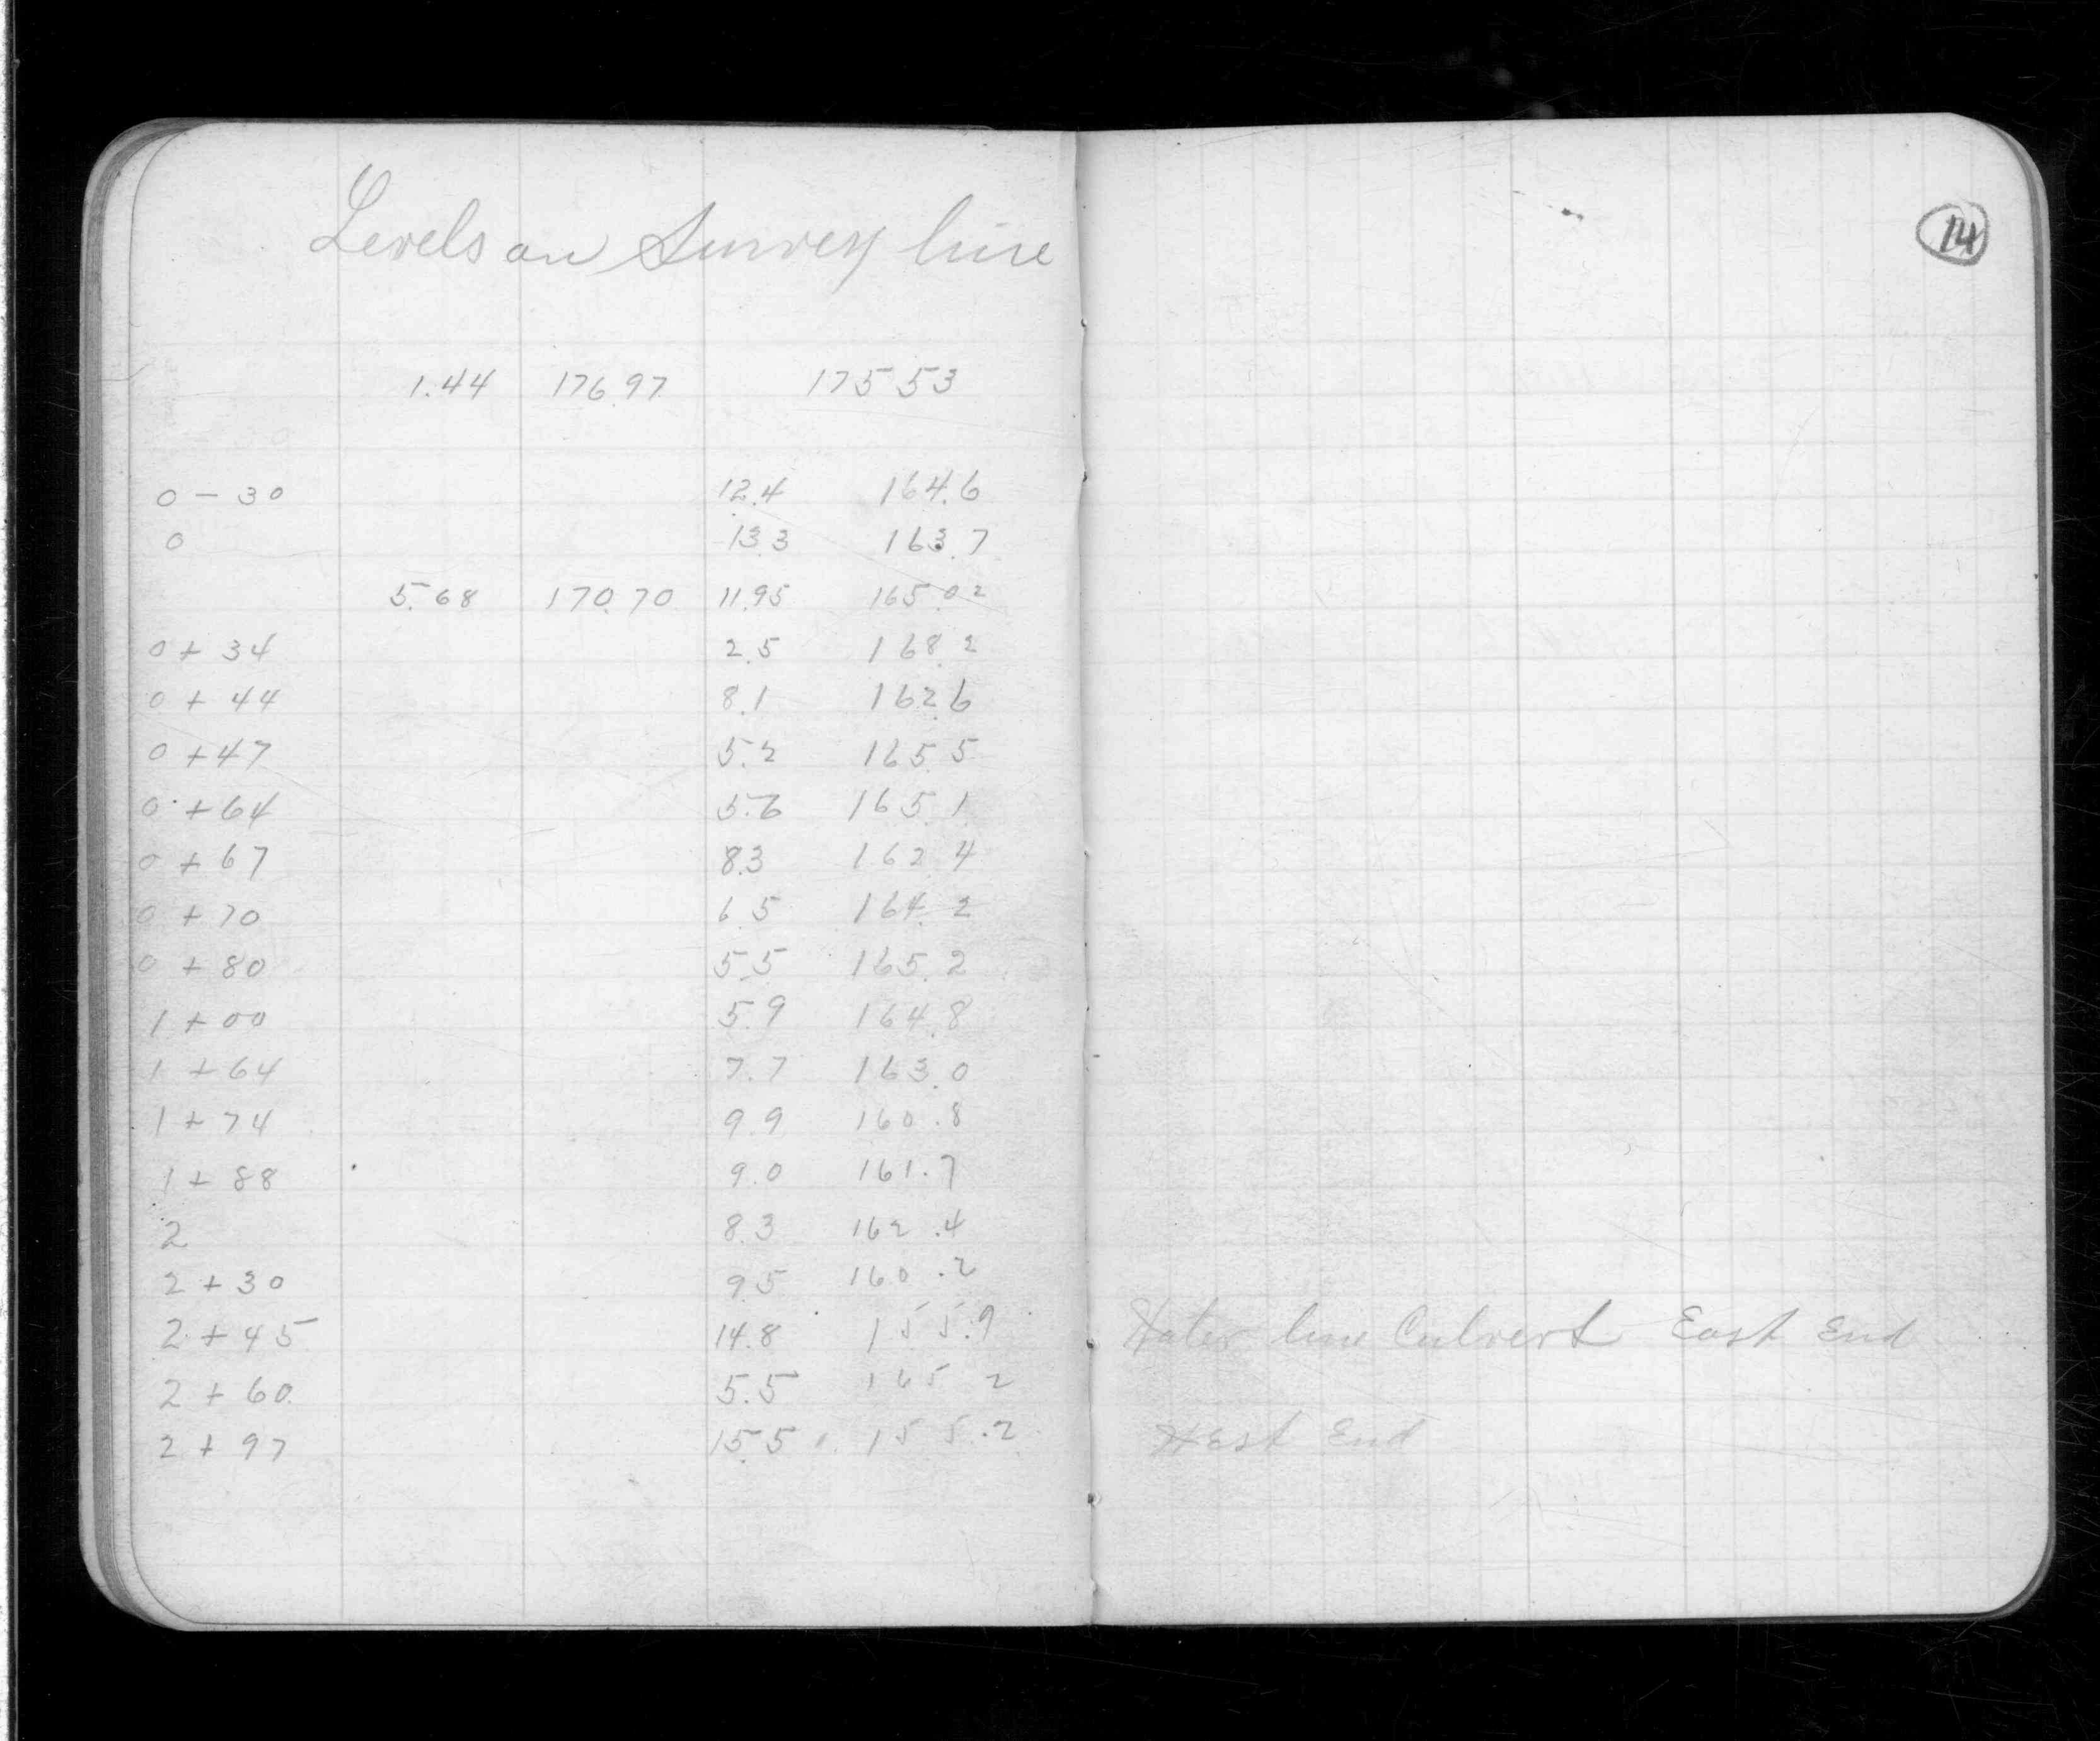 Levels on Survey line
14
1.44 176.97 175 53
0 - 30 12.4 164.6
0 13.3 163.7
5.68 170.70 11.95 165.02
0 + 34 2.5 168.2
0 + 44 8.1 162.6
0 + 47 5.2 165.5
0 + 64 5.6 165.1
0 + 67 8.3 162.4
0 + 70 6.5 164.2
0 + 80 5.5 165.2
1 + 00 5.9 164.8
1 + 64 7.7 163.0
1 + 74 9.9 160.8
1 + 88 9.0 161.7
2 8.3 162.4
2 + 30 9.5 160.2
2 + 45 14.8 155.9 Water line Culvert East End
2 + 60 5.5 165 2
2 + 97 15.5 155.2 West End